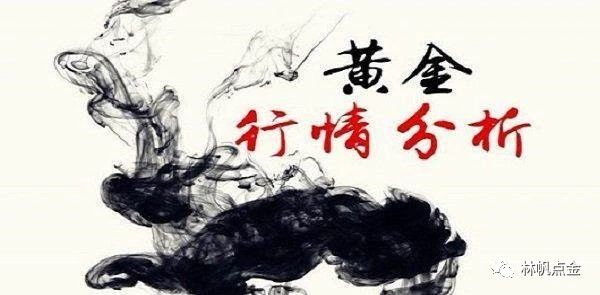 黄金
行情分析
林帆点金